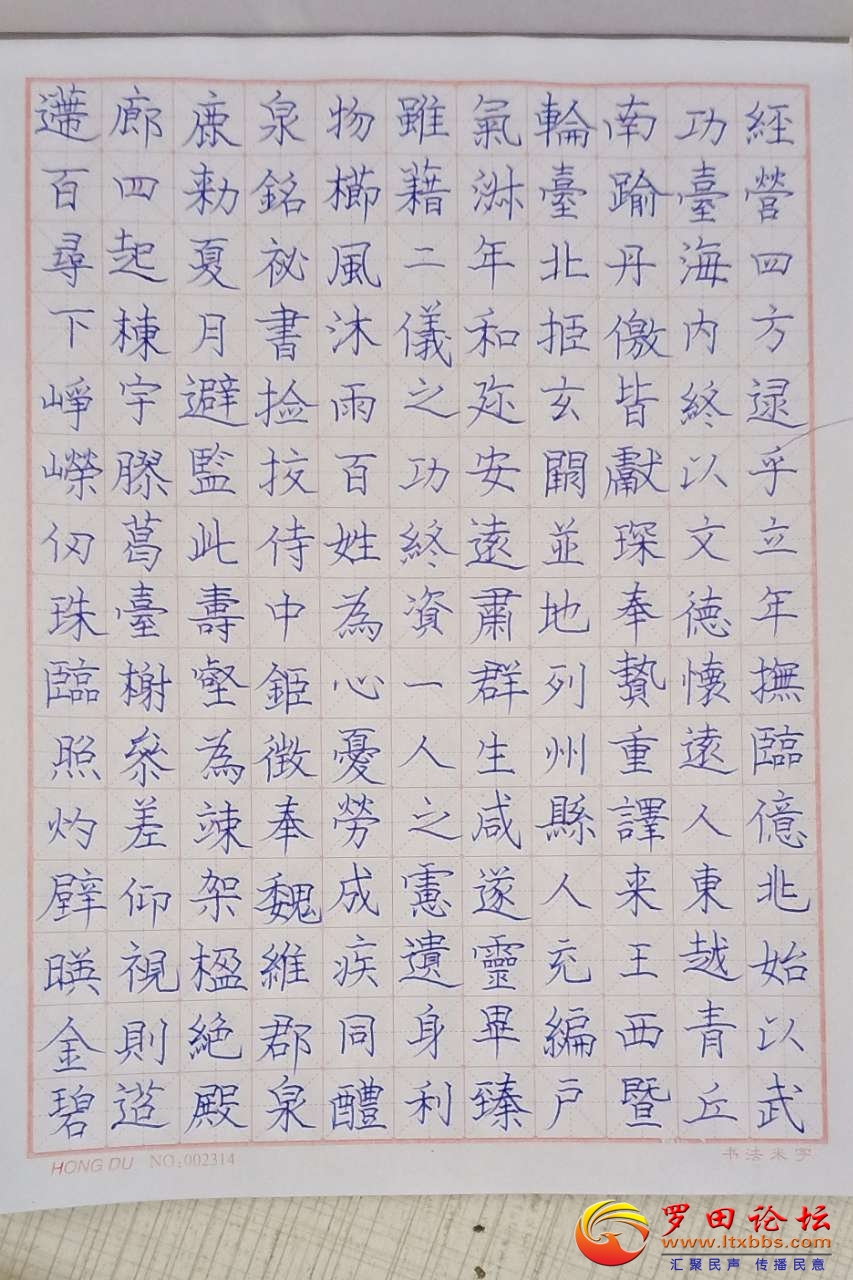 經營四方逯乎立年撫臨億兆始以武
功臺海内終以文德懷遠人東越青丘
南踰丹儌皆獻琛奉贄重譯来王西暨
輪臺北拒玄闕並地列州縣人充編戶
氣淋年和迩安遠肅群生咸遂靈畢臻
雖藉二儀之功終資一人之慮遺身利
物櫛風沐雨百姓為心憂勞成疾同醴
泉銘祕書撿挍侍中鉅徵奉魏維郡泉
鹿勅夏月避監此壽壑為竦架楹絶殿
廊四起棟宇膠葛臺榭參差仰視則迢
遰百尋下崢嶸仞珠臨照灼壁暎金碧
HONG DU NO:002314
书法米字
罗田论坛
www.ltxbbs.com
汇聚民声 传播民意